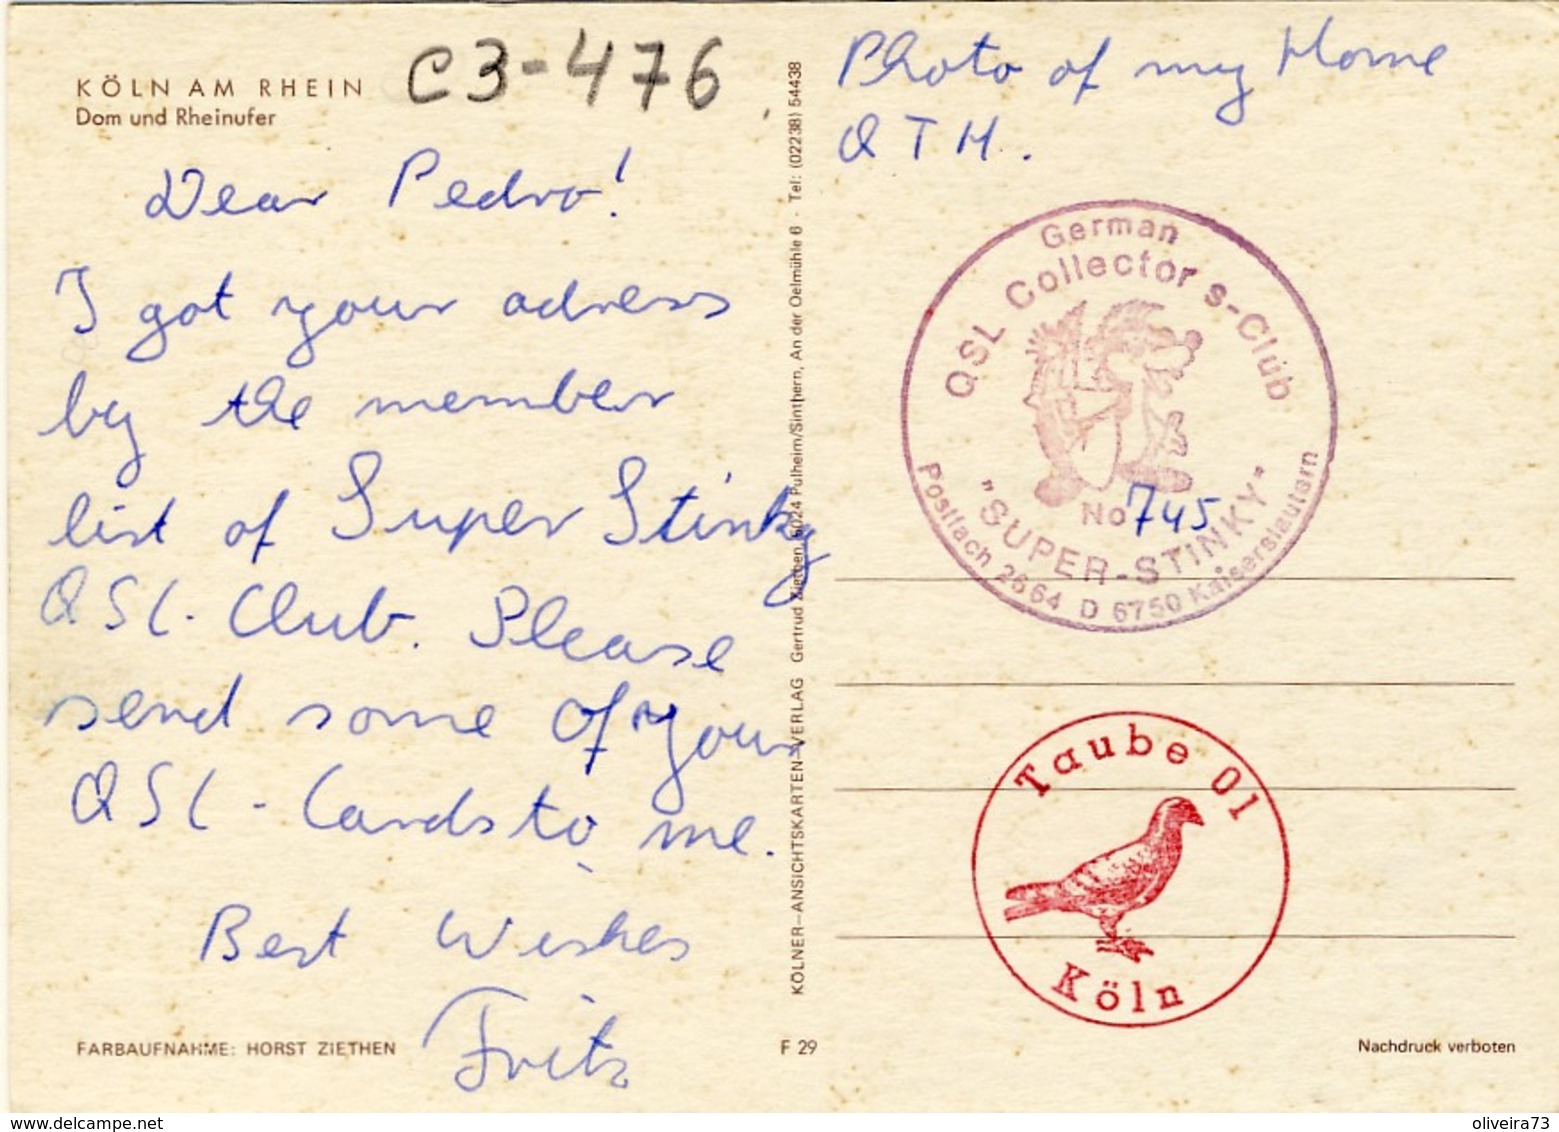 KÖLN AM RHEIN
Dom und Rheinufer
C3-476
Dear Pedro!
I got your adress
by the member
list of Super Stinky
QSL-Club. Please
send some of your
QSL-Cards to me.
Best Wishes
Fritz
FARBAUFNAHME: HORST ZIETHEN
F 29
KÖLNER-ANSICHTSKARTEN-VERLAG Gertrud Ziethen, 5024 Pulheim/Sinthern, An der Oelmühle 6 · Tel: (02238) 54438
Photo of my Home
QTH.
German
QSL Collector s-Club
No 745
"SUPER-STINKY"
Postfach 2664 D 6750 Kaiserslautern
Taube 01
Köln
Nachdruck verboten
delcampe.net
oliveira73